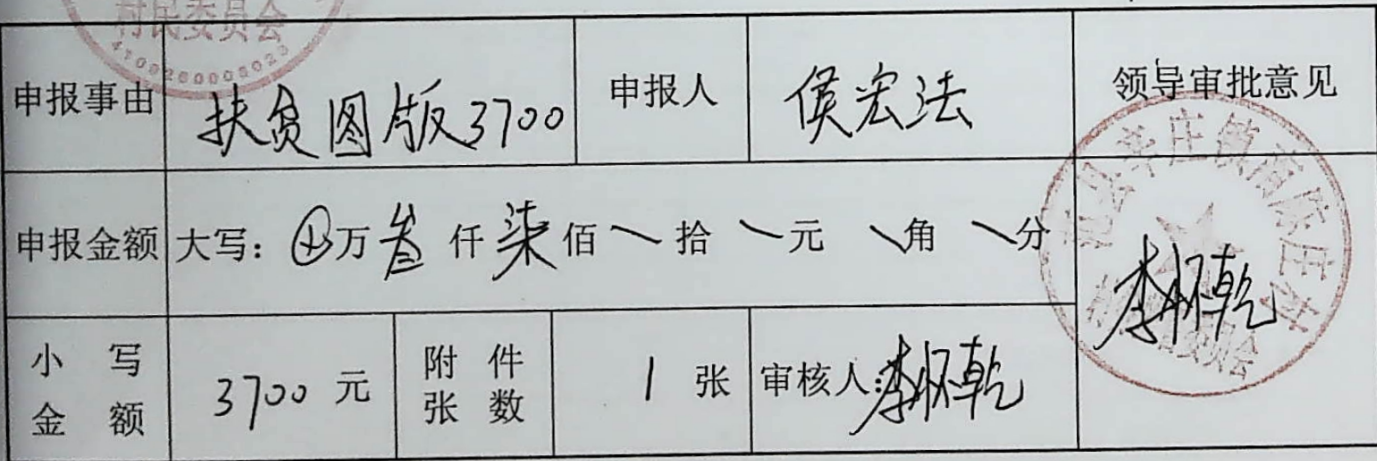 村民委员会
申报事由 扶贫图版3700 申报人 侯宏法 领导审批意见
申报金额 大写：⊕万叁仟柒佰＼拾＼元＼角＼分
李怀乾
小写金额 3700元 附件张数 1张 审核人:李怀乾